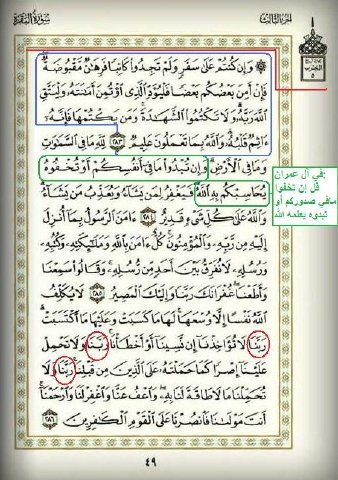 الجزء الثالث
سورة البقرة
الحزب
٥
۞ وَإِن كُنتُمْ عَلَىٰ سَفَرٍ وَلَمْ تَجِدُوا كَاتِبًا فَرِهَٰنٌ مَّقْبُوضَةٌ
فَإِنْ أَمِنَ بَعْضُكُم بَعْضًا فَلْيُؤَدِّ الَّذِي اؤْتُمِنَ أَمَٰنَتَهُ وَلْيَتَّقِ
اللَّهَ رَبَّهُ وَلَا تَكْتُمُوا الشَّهَٰدَةَ وَمَن يَكْتُمْهَا فَإِنَّهُ
ءَاثِمٌ قَلْبُهُ وَاللَّهُ بِمَا تَعْمَلُونَ عَلِيمٌ ٢٨٣ لِّلَّهِ مَا فِي السَّمَٰوَٰتِ
وَمَا فِي الْأَرْضِ وَإِن تُبْدُوا مَا فِي أَنفُسِكُمْ أَوْ تُخْفُوهُ
يُحَاسِبْكُم بِهِ اللَّهُ فَيَغْفِرُ لِمَن يَشَاءُ وَيُعَذِّبُ مَن يَشَاءُ
وَاللَّهُ عَلَىٰ كُلِّ شَيْءٍ قَدِيرٌ ٢٨٤ ءَامَنَ الرَّسُولُ بِمَا أُنزِلَ
إِلَيْهِ مِن رَّبِّهِ وَالْمُؤْمِنُونَ كُلٌّ ءَامَنَ بِاللَّهِ وَمَلَٰئِكَتِهِ وَكُتُبِهِ
وَرُسُلِهِ لَا نُفَرِّقُ بَيْنَ أَحَدٍ مِّن رُّسُلِهِ وَقَالُوا سَمِعْنَا
وَأَطَعْنَا غُفْرَانَكَ رَبَّنَا وَإِلَيْكَ الْمَصِيرُ ٢٨٥ لَا يُكَلِّفُ
اللَّهُ نَفْسًا إِلَّا وُسْعَهَا لَهَا مَا كَسَبَتْ وَعَلَيْهَا مَا اكْتَسَبَتْ
رَبَّنَا لَا تُؤَاخِذْنَا إِن نَّسِينَا أَوْ أَخْطَأْنَا رَبَّنَا وَلَا تَحْمِلْ
عَلَيْنَا إِصْرًا كَمَا حَمَلْتَهُ عَلَى الَّذِينَ مِن قَبْلِنَا رَبَّنَا وَلَا
تُحَمِّلْنَا مَا لَا طَاقَةَ لَنَا بِهِ وَاعْفُ عَنَّا وَاغْفِرْ لَنَا وَارْحَمْنَا
أَنتَ مَوْلَىٰنَا فَانصُرْنَا عَلَى الْقَوْمِ الْكَٰفِرِينَ ٢٨٦
٤٩
في آل عمران:
قل إن تخفوا
مافي صدوركم أو
تبدوه يعلمه الله